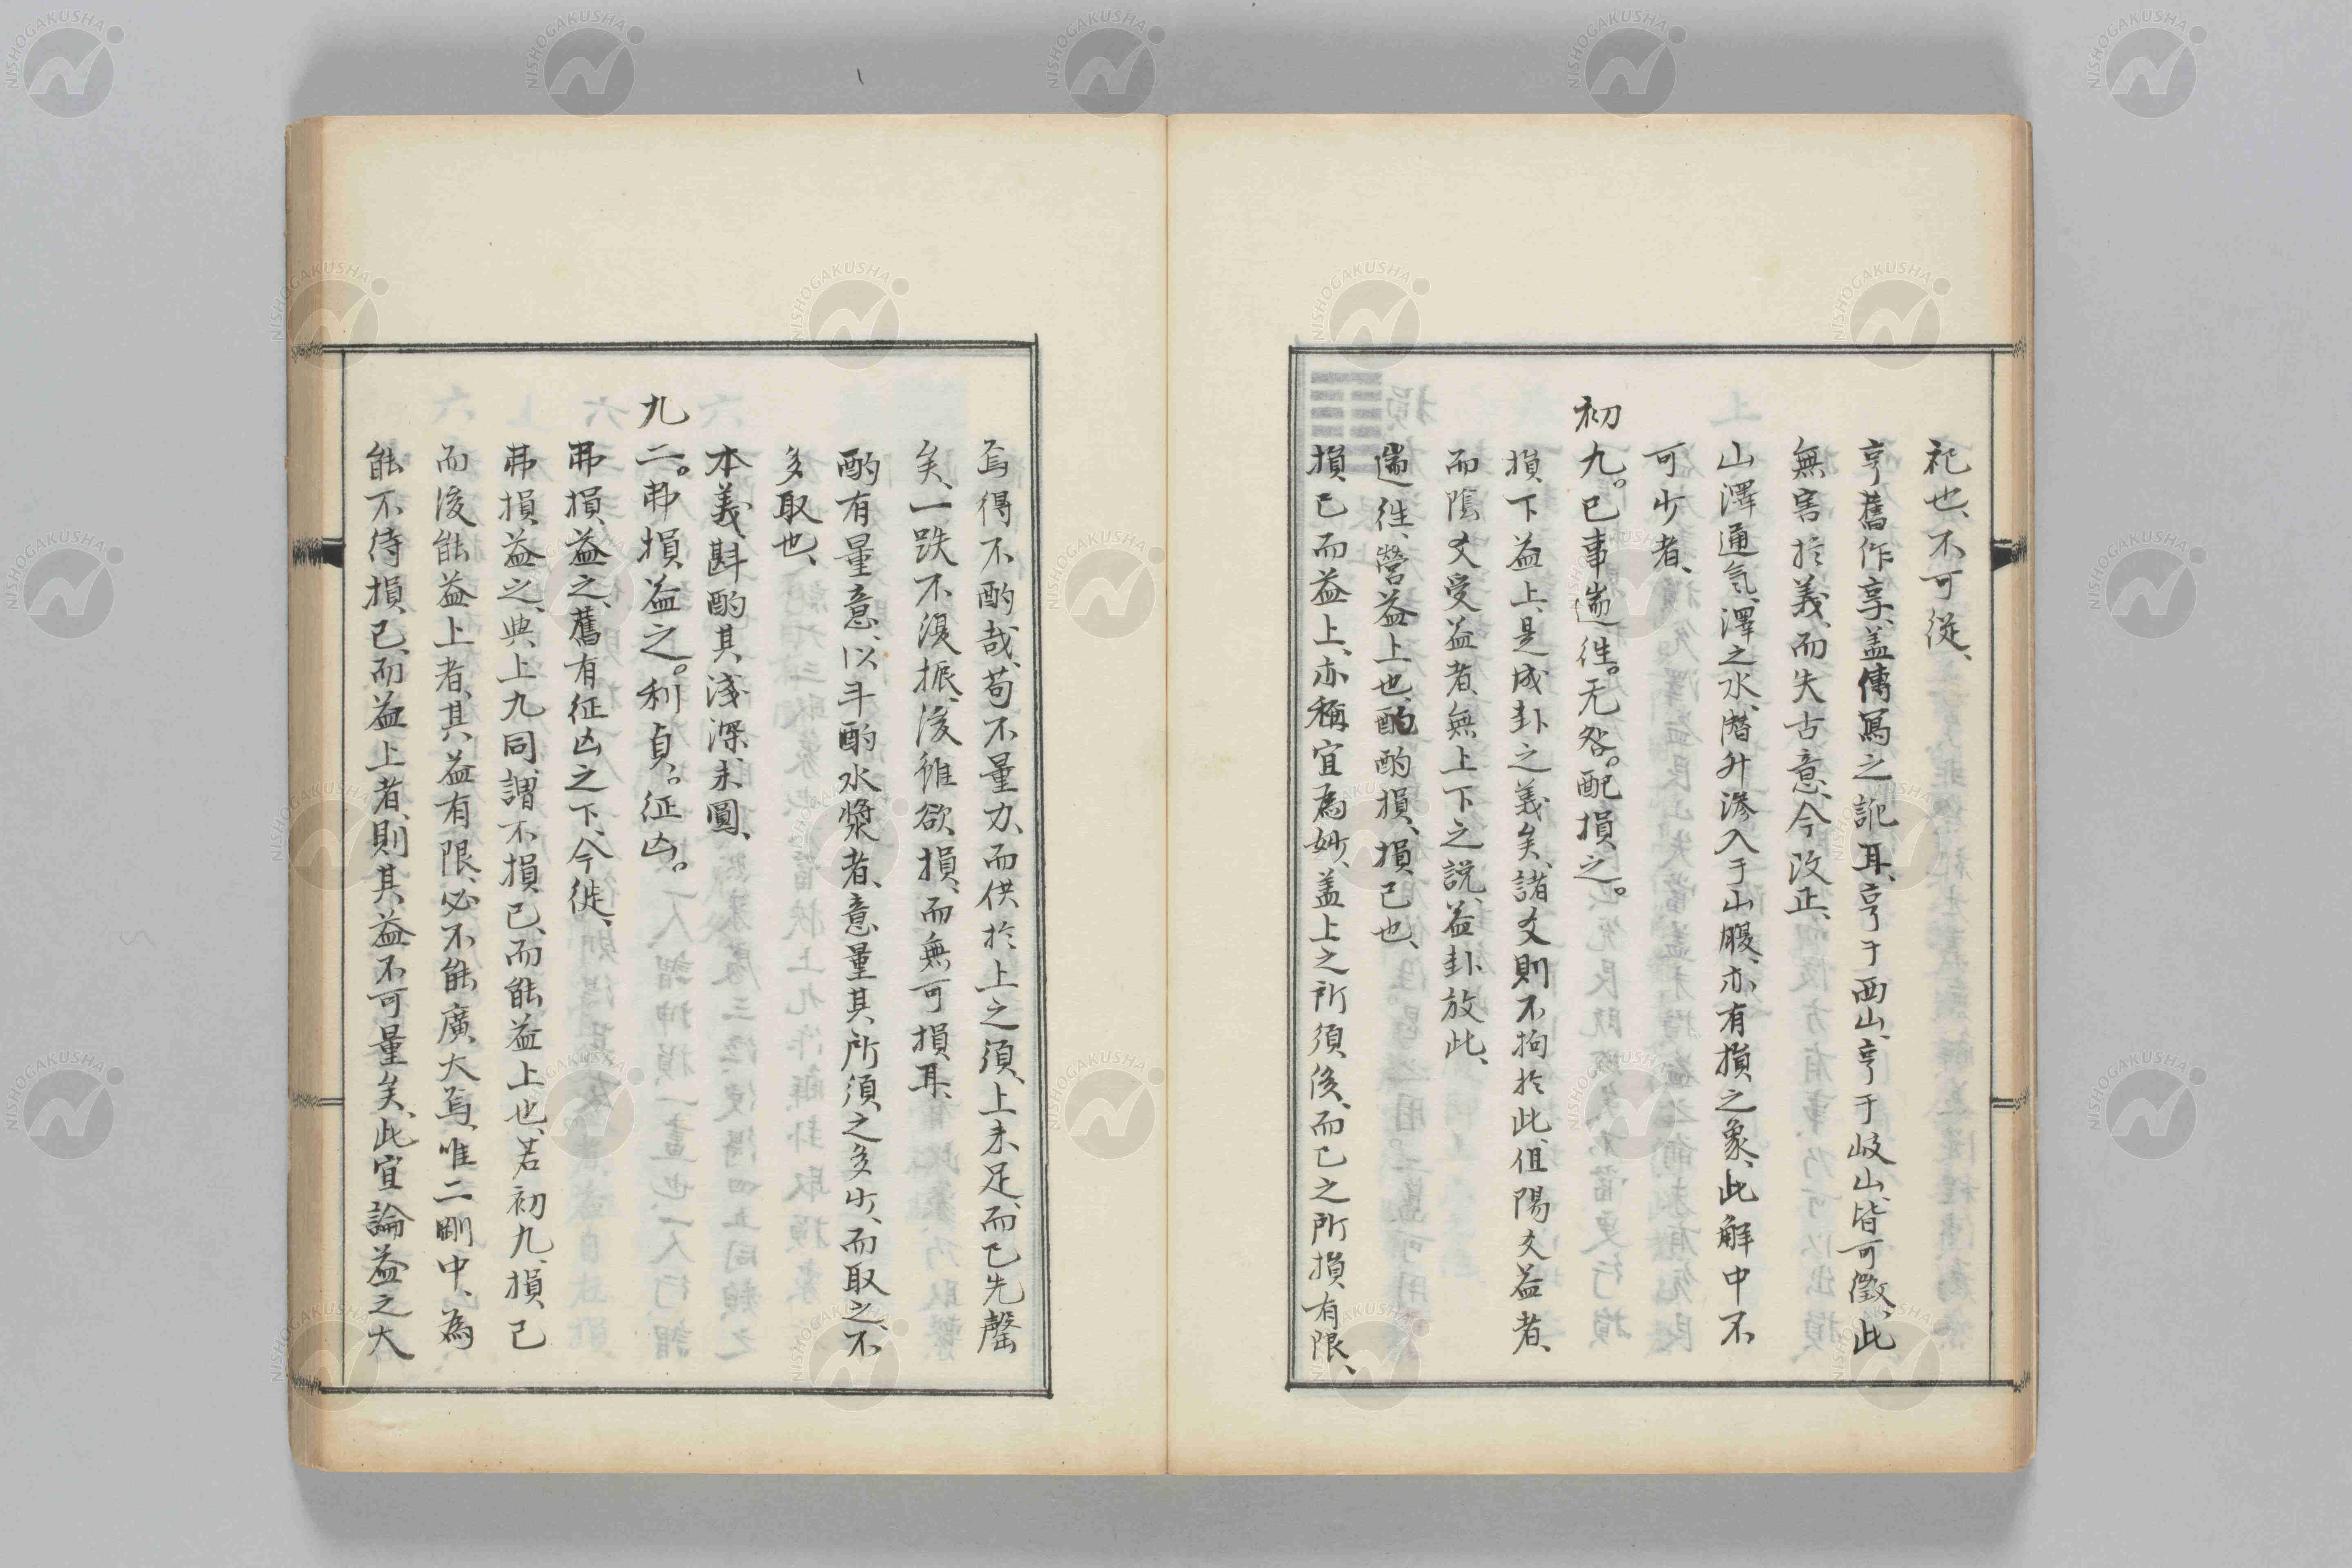 祀也、不可從、
亨舊作享、盖傳寫之訛耳、亨于西山、亨于岐山、皆可徵、此
無害於義、而失古意、今改正、
山澤通気、澤之水、潜升滲入于山腹、亦有損之象、此解中不
可少者、
初九。已事遄徃。无咎。酌損之。
損下益上、是成卦之義矣、諸爻則不拘於此、但陽爻益者、
而陰爻受益者、無上下之説、益卦放此、
遄徃、營益上也、酌酌損、損己也、
損己而益上、亦稱宜為妙、盖上之所須後、而己之所損有限、
焉得不酌哉、苟不量力、而供於上之須、上未足、而己先罄
矣、一跌不復振、後雖欲損、而無可損耳、
酌有量意、以斗酌水漿者、意量其所須之多少、而取之、不
多取也、
本義斟酌其浅深、未圓、
九二。弗損益之。利貞。征凶。
弗損益之、舊有征凶之下、今徙、
弗損益之、與上九同、謂不損己、而能益上也、若初九、損己
而後能益上者、其益有限、必不能廣大焉、唯二剛中、為
能不待損己、而益上者、則其益不可量矣、此宜論益之大
NISHOGAKUSHA